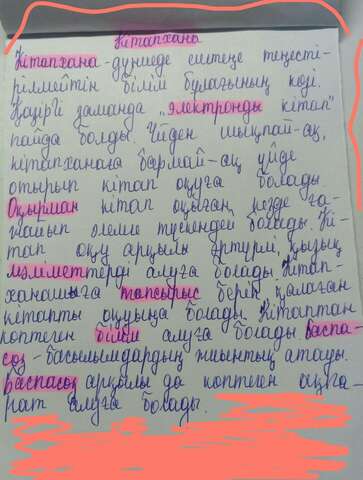 Кітапхана
Кітапхана - дүниеде ештеңе теңесті-
рілмейтін білім бұлағының көзі.
Қазіргі заманда "электронды кітап"
пайда болды. Үйден шықпай-ақ,
кітапханаға бармай-ақ үйде
отырып кітап оқуға болады.
Оқырман кітап оқыған кезде ға-
жайып әлемге түскендей болады. Кі-
тап оқу арқылы әртүрлі, қызық
мәліметтерді алуға болады. Кітап-
ханашыға тапсырыс беріп, қалаған
кітапты оқуыңа болады. Кітаптан
көптеген білім алуға болады. Баспа-
сөз - басылымдардың жиынтық атауы.
Баспасөз арқылы да көптеген ақпа-
рат алуға болады.